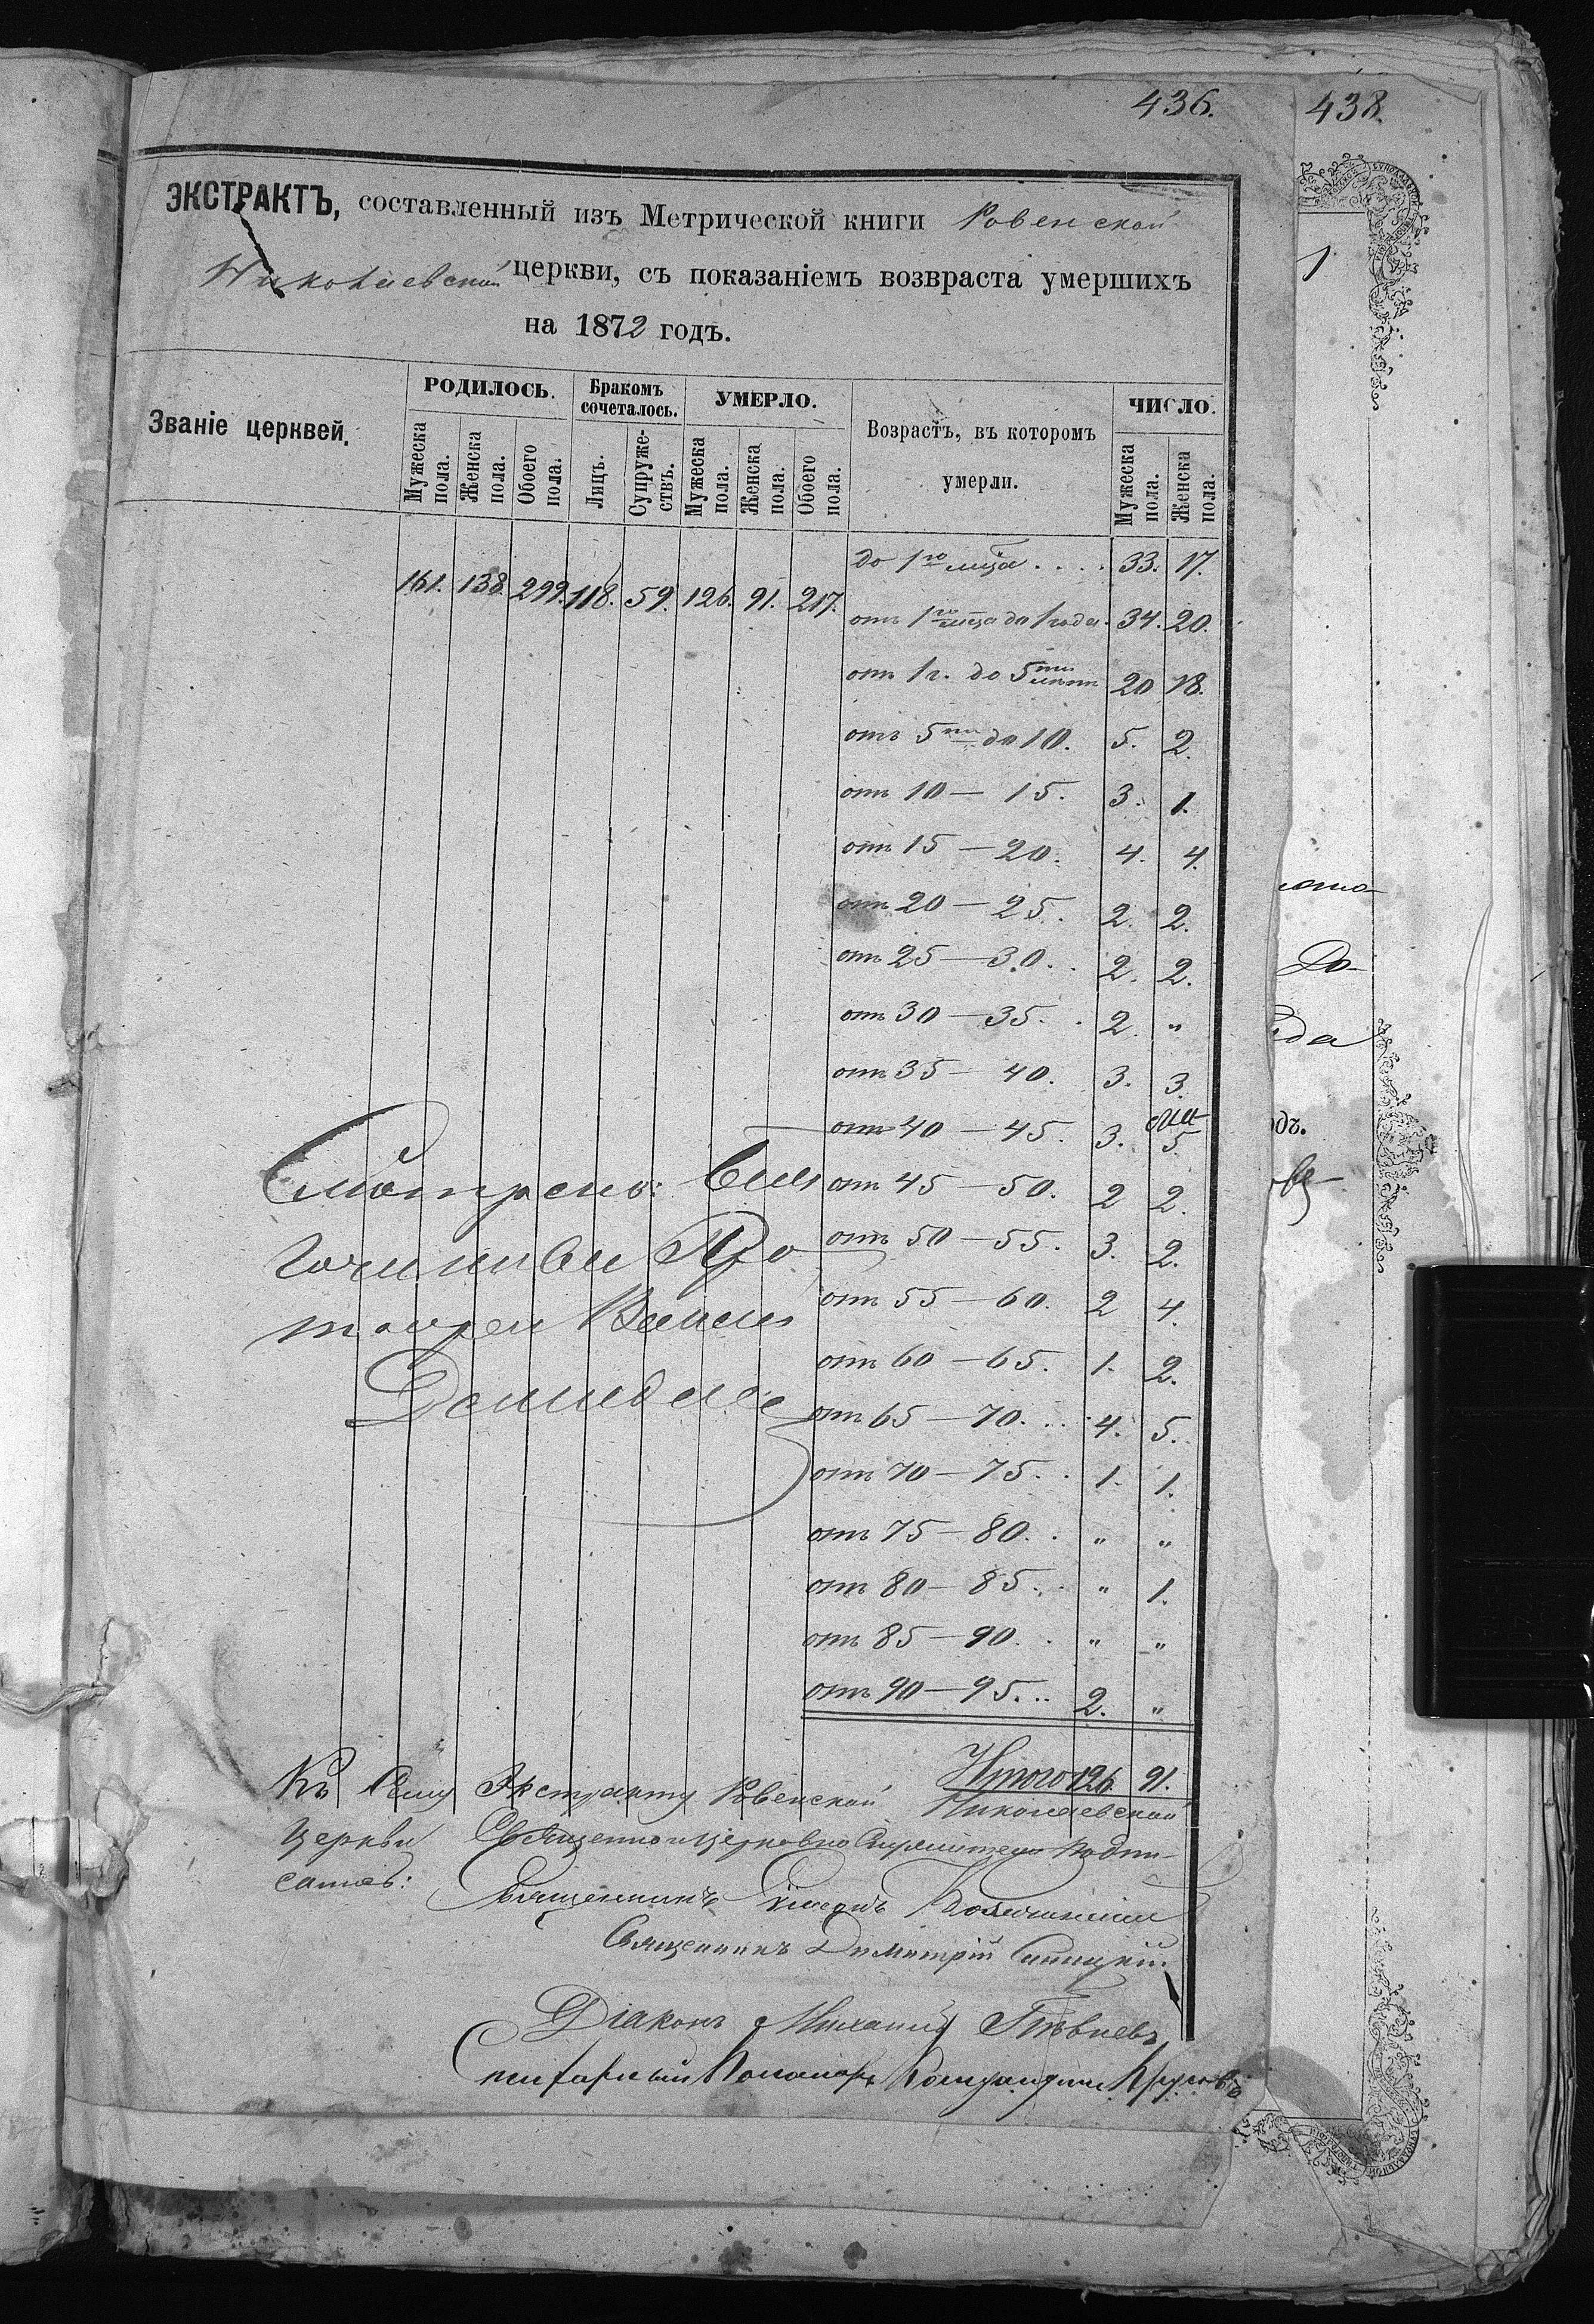 436.
438.
ЭКСТРАКТЪ, составленный изъ Метрической книги Ровенской
Николаевской церкви, съ показаніемъ возвраста умершихъ
на 1872 годъ.
Званіе церквей.
РОДИЛОСЬ.
Мужеска пола.
Женска пола.
Обоего пола.
Бракомъ сочеталось.
Лицъ.
Супруже-ствъ.
УМЕРЛО.
Мужеска пола.
Женска пола.
Обоего пола.
Возрастъ, въ которомъ
умерли.
ЧИСЛО.
Мужеска пола.
Женска пола.
161. 138. 299. 118. 59. 126. 91. 217.
до 1го мца .... 33. 17.
отъ 1го мца до 1 года. 34. 20.
отъ 1 г. до 5ти лѣтъ 20 18.
отъ 5ти до 10. 5. 2.
отъ 10 — 15. 3. 1.
отъ 15 — 20. 4. 4.
отъ 20 — 25. 2. 2.
отъ 25 — 30. 2. 2.
отъ 30 — 35. 2. "
отъ 35 — 40. 3. 3.
отъ 40 — 45. 3. 5.
отъ 45 — 50. 2 2.
отъ 50 — 55. 3. 2.
отъ 55 — 60. 2 4.
отъ 60 — 65. 1. 2.
отъ 65 — 70. 4. 5.
отъ 70 — 75. 1. 1.
отъ 75 — 80. " "
отъ 80 — 85. " 1.
отъ 85 — 90. " "
отъ 90 — 95. 2. "
Итого 126. 91.
Къ сему Экстракту Ровенской Николаевской
Церкви Священно и церковно Служители подпи-
Священникъ
Священникъ Димитрій
Діаконъ Михаилъ
1
До-